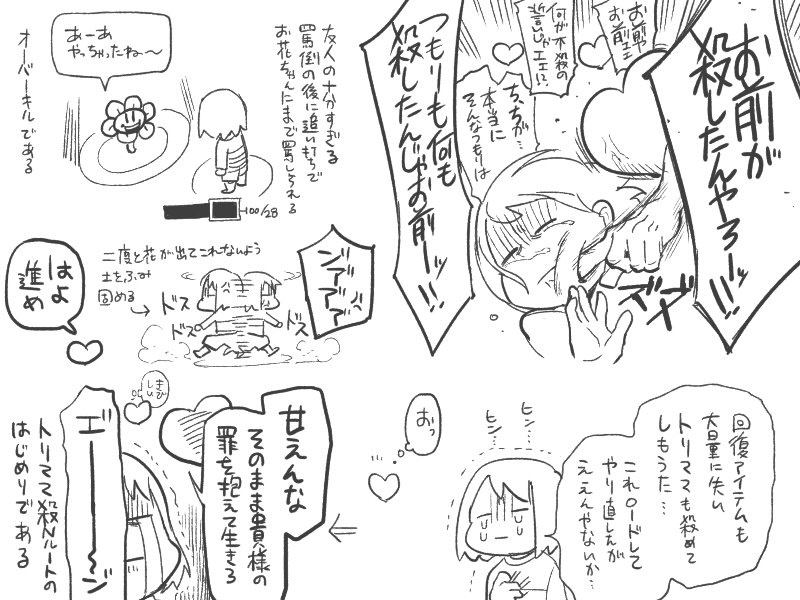 お前が
殺したんやろー!!
お前や
お前エエ
何が不殺の
誓いじゃエエ!?
ち、ちが…
本当に
そんなつもりは
つもりも何も
殺したんじゃお前ーッ!!
友人の十分すぎる
罵倒の後に追い打ちで
お花ちゃんにまで罵しられる
オーバーキルである
あーあ
やっちゃったね〜
100/28
二度と花が出てこれないよう
土をふみ
固める
ドス
ドス
ドス
はよ
進め
回復アイテムも
大量に失い
トリママも殺めて
しもうた…
これロードして
やり直したが
ええんやないか…
ヒン…
ヒン…
おっ
甘えんな
そのまま貴様の
罪を抱えて生きろ
きび
しい
トリママ殺Nルートの
はじめりである